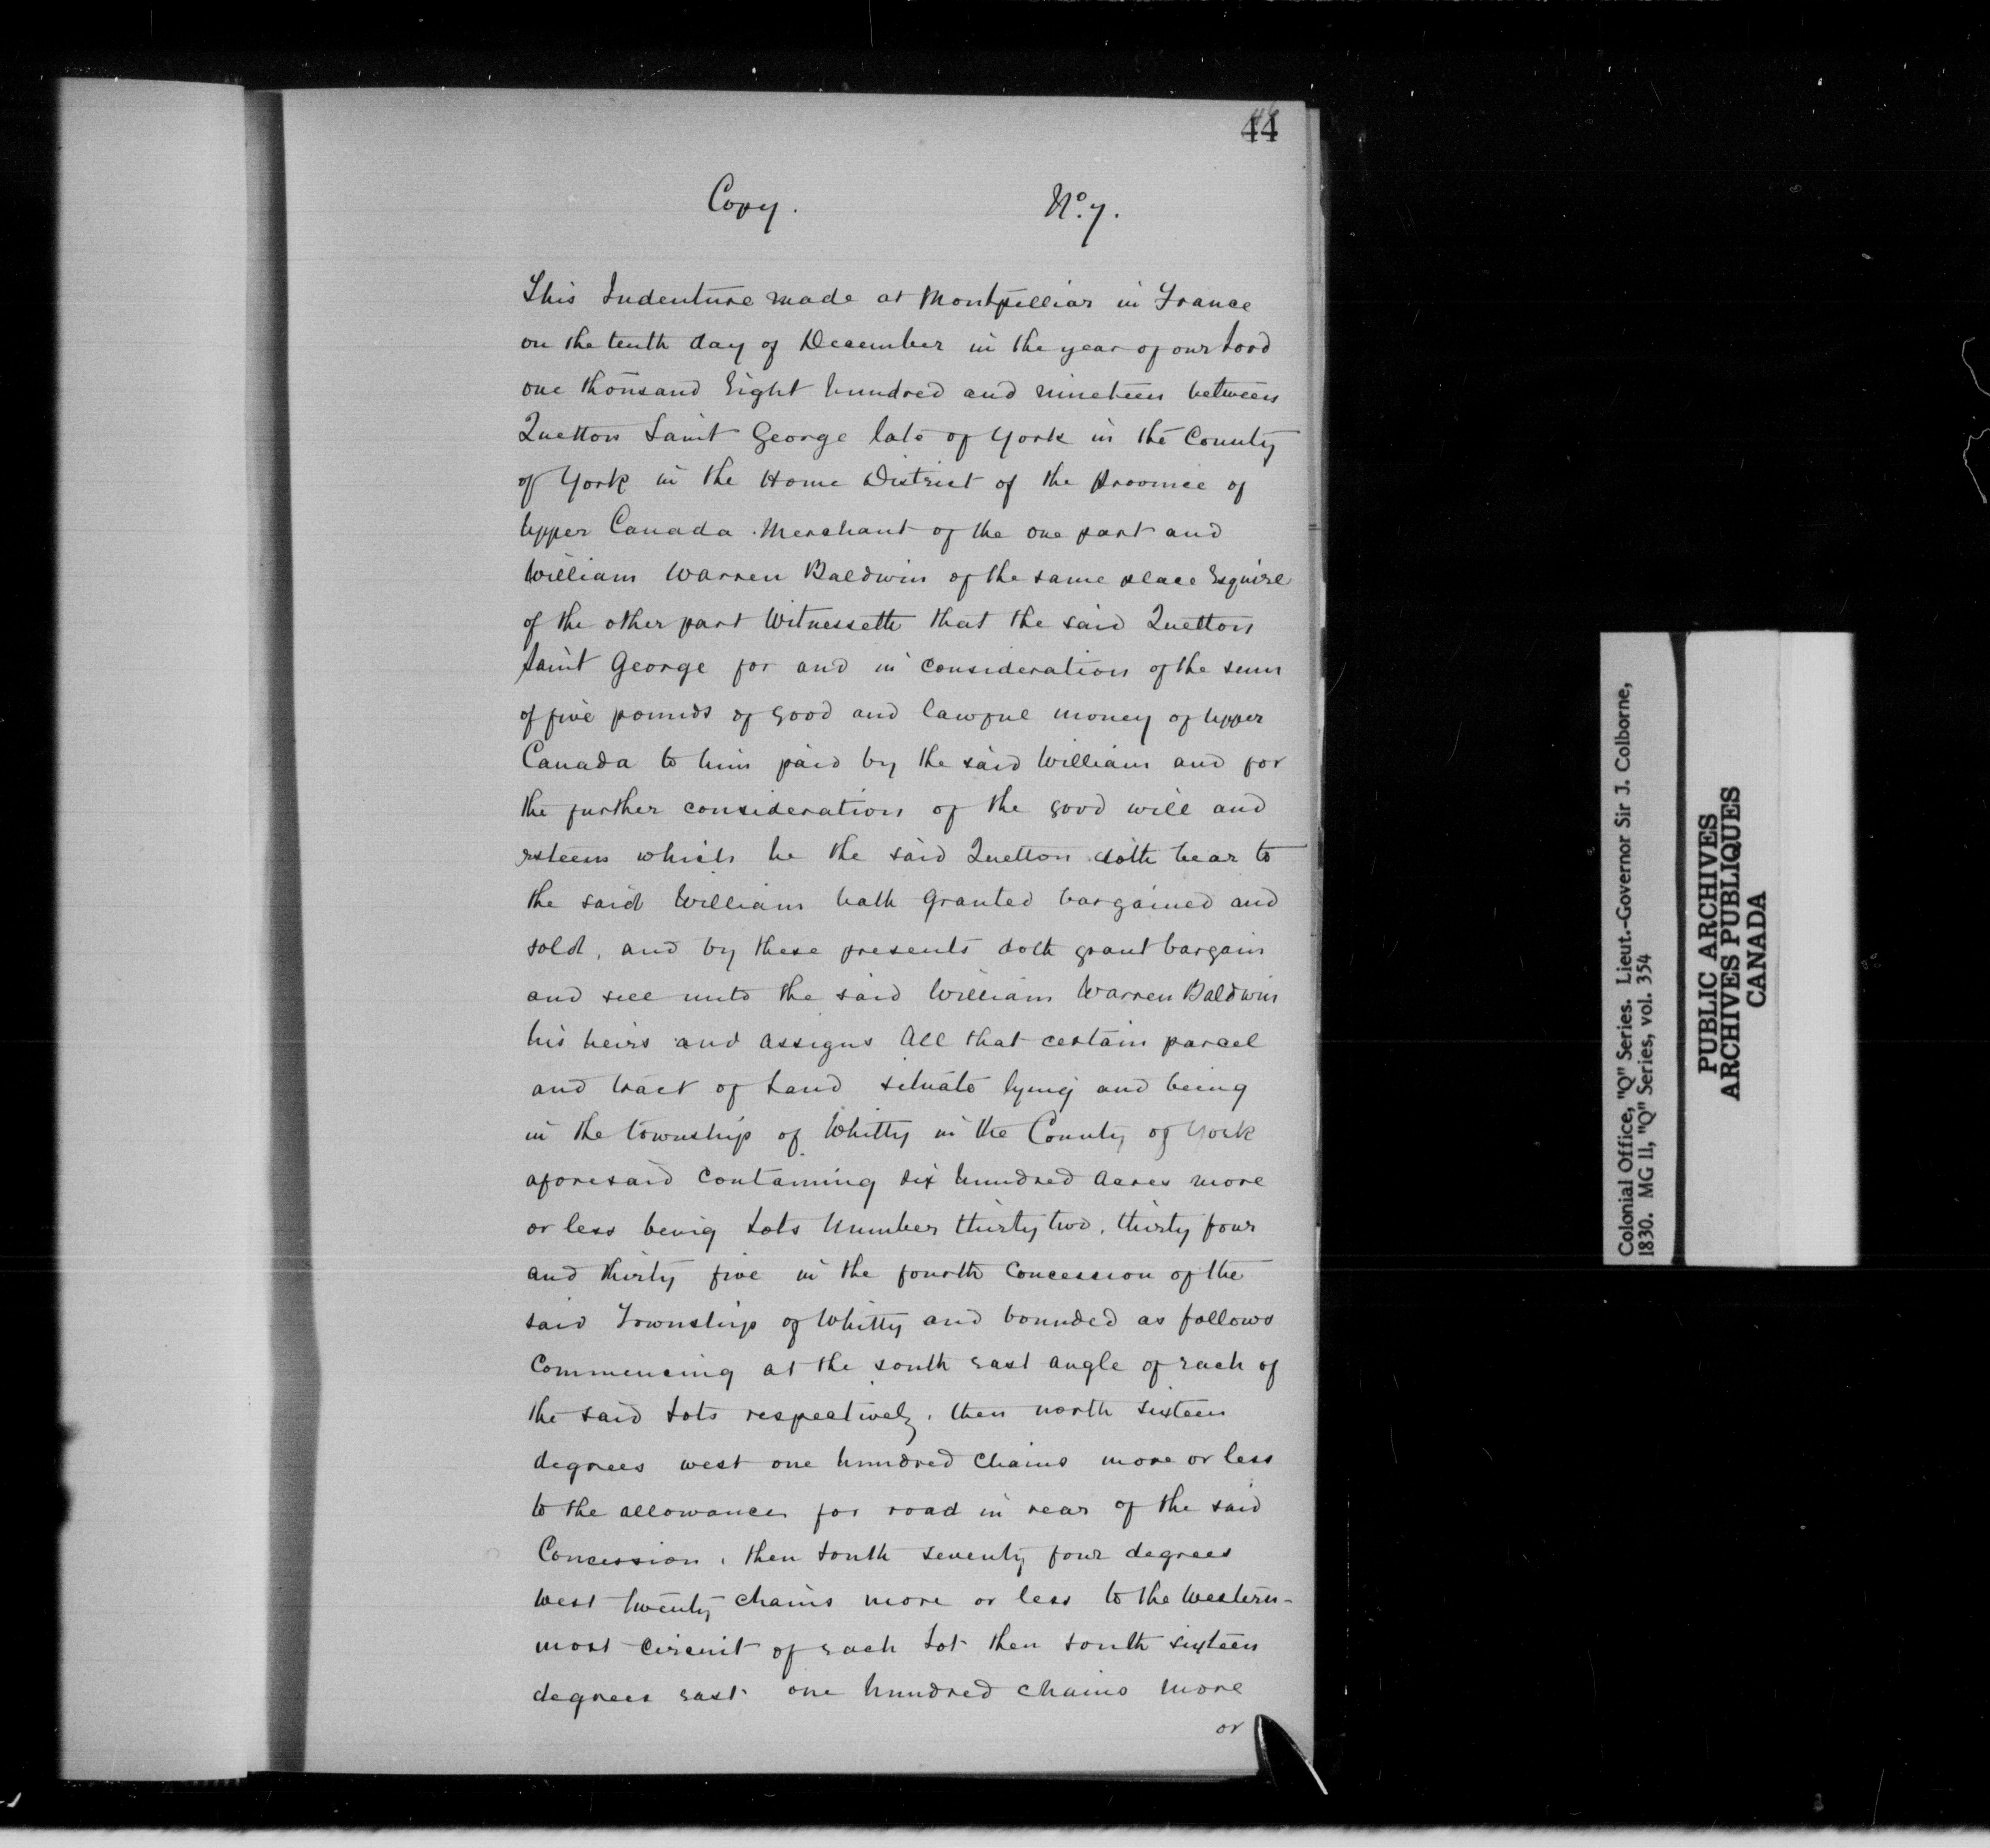 44
Copy. No. 7.
This Indenture made at Montpelliar in France
on the tenth day of December in the year of our Lord
one thousand Eight hundred and nineteen between
Quetton Saint George late of York in the County
of York in the Home District of the Province of
Upper Canada Merchant of the one part and
William Warren Baldwin of the same place Esquire
of the other part Witnesseth that the said Quetton
Saint George for and in consideration of the sum
of five pounds of good and lawful money of Upper
Canada to him paid by the said William and for
the further consideration of the good will and
esteem which he the said Quetton doth bear to
the said William hath granted bargained and
sold, and by these presents doth grant bargain
and sell unto the said William Warren Baldwin
his heirs and assigns All that certain parcel
and tract of Land situate lying and being
in the township of Whitty in the County of York
aforesaid containing six hundred Acres more
or less being Lots Number thirty two, thirty four
and thirty five in the fourth Concession of the
said Township of Whitty and bounded as follows
Commencing at the south east angle of each of
the said Lots respectively, then north sixteen
degrees west one hundred chains more or less
to the allowance for road in rear of the said
Concession, then South seventy four degrees
west twenty chains more or less to the western-
most circuit of each Lot then South sixteen
degrees east one hundred chains more
or
Colonial Office, "Q" Series. Lieut.-Governor Sir J. Colborne,
1830. MG 11, "Q" Series, vol. 354
PUBLIC ARCHIVES
ARCHIVES PUBLIQUES
CANADA